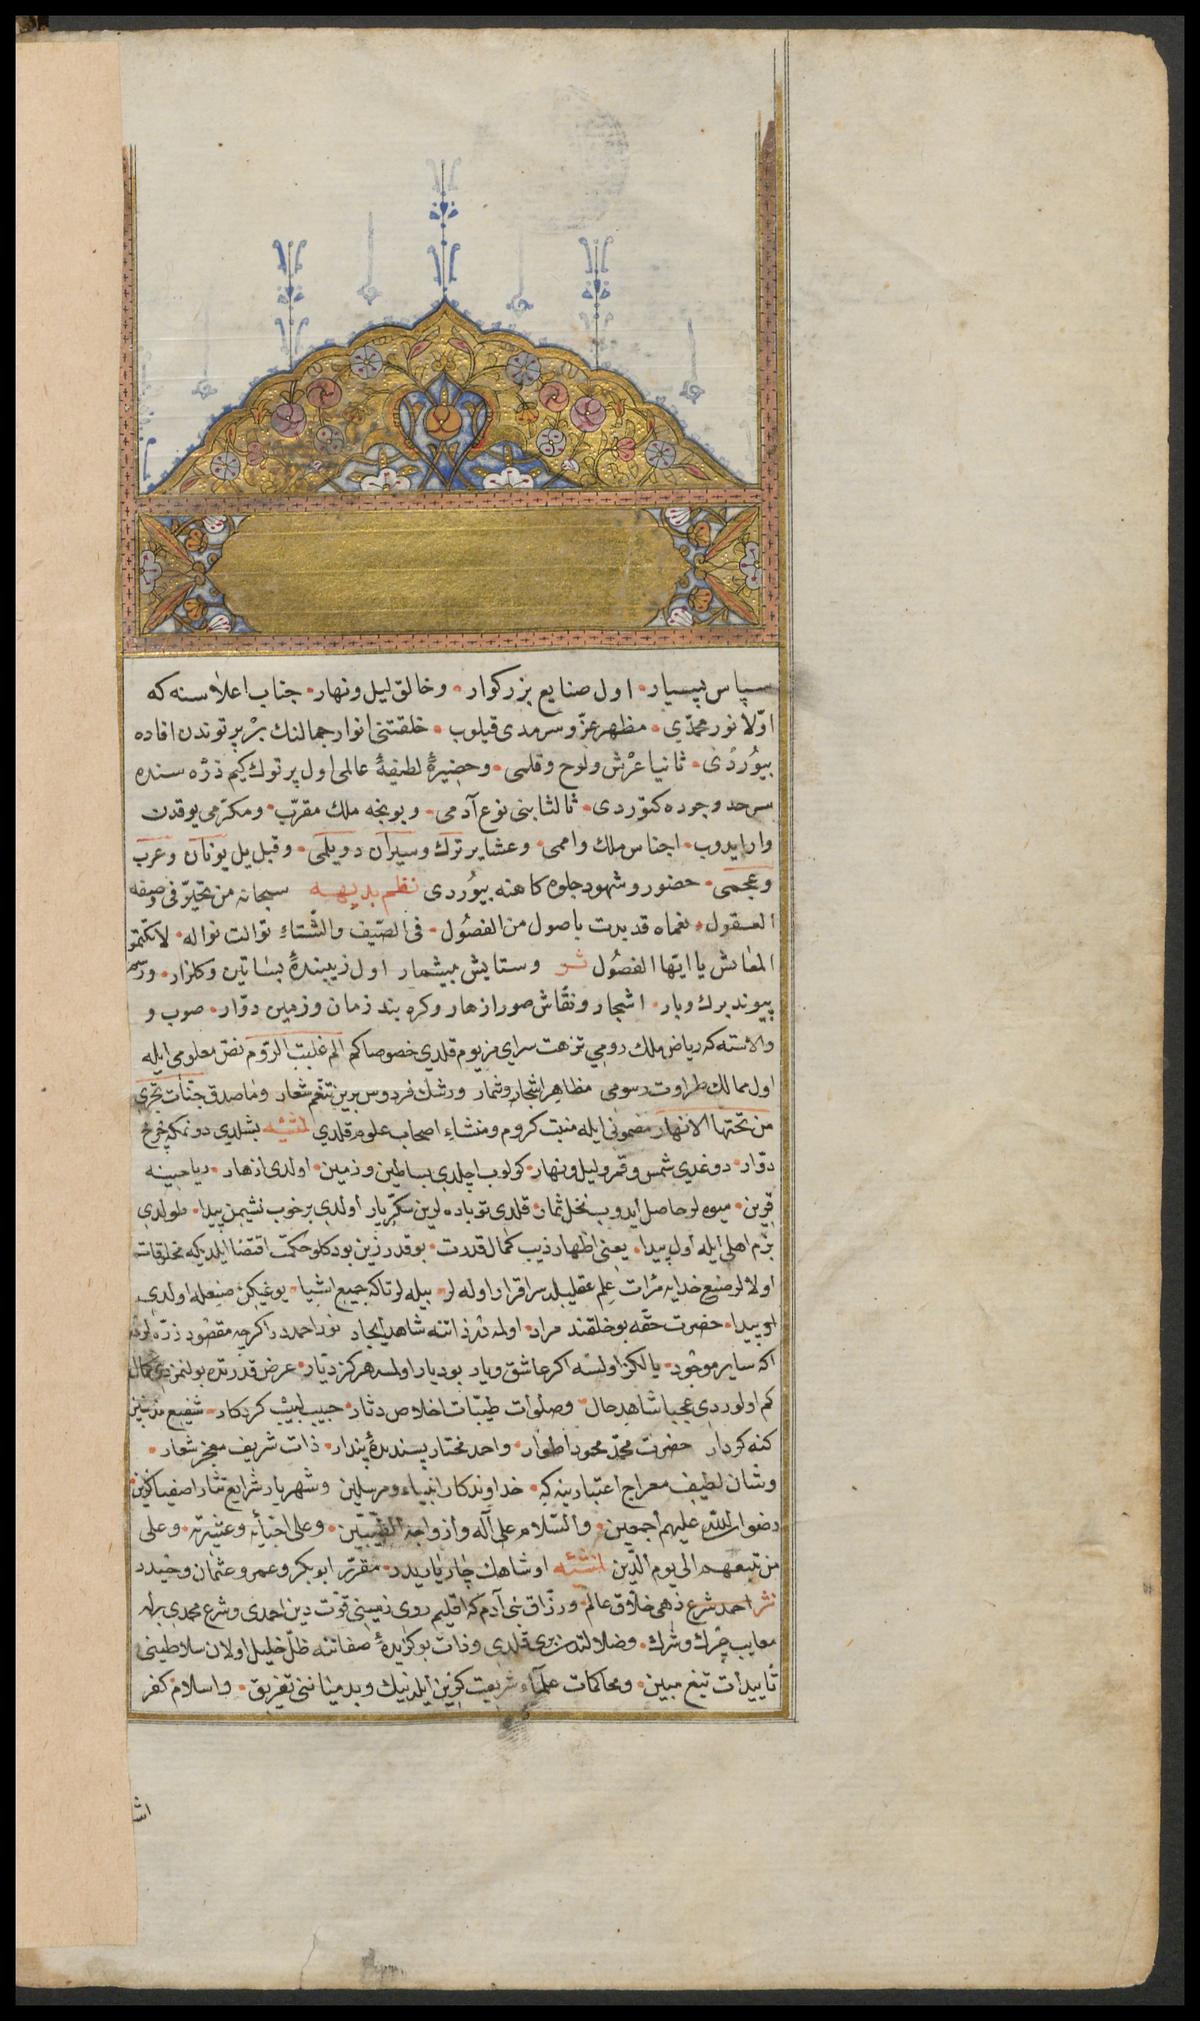 سپاس بیسیار اول صنایع بزرکوار و خالق لیل و نهار جناب اعلاسنه که
اوّلا نور محمّدی مظهر عزّ و سرمدی قیلوب خلقتنی انوار جمالنك بر پرتوندن افاده
بیوُردی ثانیا عرش و لوح و قلمی و حضیرهٔ لطیفهٔ عالمی اول پرتوك كیم ذرّه سنده
سرحد وجوده كتوردی ثالثا بنی نوع آدمی و بونجه ملك مقرّب و مكرّمی یوقدن
وار ایدوب اجناس ملك و اممی و عشایر ترك و سیران دویلمی و قبل یل یونان و عرب
و عجمی حضور و شهود جلوه كاهنه بیوُردی نظم بدیهه سبحانه من تحیّر فی وصفه
العقول نعماه قد بدت باصول من الفصُول فی الصّیف والشّتاء توالت نواله لا تكتمو
المعایش یا ایتها الفصُول نثر و ستایش بیشمار اول زیبندهٔ بساتین و كلزار و رسم
پیوند برك و بار اشجار و نقّاش صور ازهار و كره بند زمان و زمین دوّار صوب و
والاسنه كه ریاض ملك رومی نزهت سرای مز یوم قلدی خصوصا كم الم غلبت الرّوم نصّ معلومی ایله
اول ممالك طراوت رسومی مظاهر اشجار و ثمار و رشك فردوس برین تنعّم شعار و ما صدق جنّات تجری
من تحتها الانهار مضمونی ایله منبت كروم و منشاء اصحاب علوم قلدی لمنشئه بشلدی دونمكه چرخ
دوّار دوغدی شمس و قمر و لیل و نهار كولوب اچلدی بساطین و زمین اولدی ازهار ریاحینه
قرین میوه لر حاصل ایدوب نخل ثمار قلدی
بزم اهلی ایله اول پیدا یعنی اظهار ذیب كمال قدرت بو قدر زین
اولا لر صنع خدایه مرآت علم عقلیله سر اقرار اوله لر بیله لر تاكه جمیع اشیا یوغیكن صنعله اولدی
پیدا حضرت حقّه بو خلقتد مراد اوله در ذاتنه شاهد ایجاد نور احمددر اكرچه مقصُود
اكه سایر موجُود یالكز اولسه اكر عاشق و یار بو دیار اولسه هر كز دیّار عرض قدرتده بولنمزدی كمال
كم اولوردی عجبا شاهد حال و صلوات طیّبات اخلاص دثار حبیب لبیب كردكار شفیع مذنبین
كنه كردار حضرت محمّد محمود اطوار و احد مختار پسندیدهٔ پندار ذات شریف معجز شعار
و شان لطیف معراج اعتبارینه كه خداوندكار انبیاء و مرسلین و شهریار شرایع شار اصفیا كزین
رضوان الله علیهم أجمعین والسّلام علی آله وأزواجه الطّیّبین وعلی احبّائه وعشیرته وعلی
من تبعهم الی یوم الدّین لمنشئه او شاهك چار یاریدر مقرّر ابو بكر و عمر و عثمان و حیدر
نثر احمد شرع ذهی خلاّق عالم و رزّاق بنی آدم كه اقلیم روی زمینی قوّت دین احمدی و شرع محمّدی برله
معایب چرك و شرك و ضلالتدن بری قلدی و ذات بوكزیدهٔ صفاتنه ظلّ خلیل اولان سلاطینی
تأییدات تیغ مبین و محاكمات علماء شریعت كزین ایلدنیك و بد میاننی تفریق و اسلام كفر